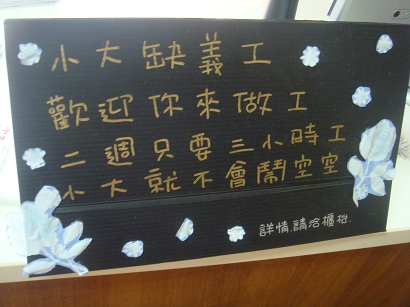 小大缺義工
歡迎你來做工
二週只要三小時工
小大就不會鬧空空
詳情.請洽櫃抬.